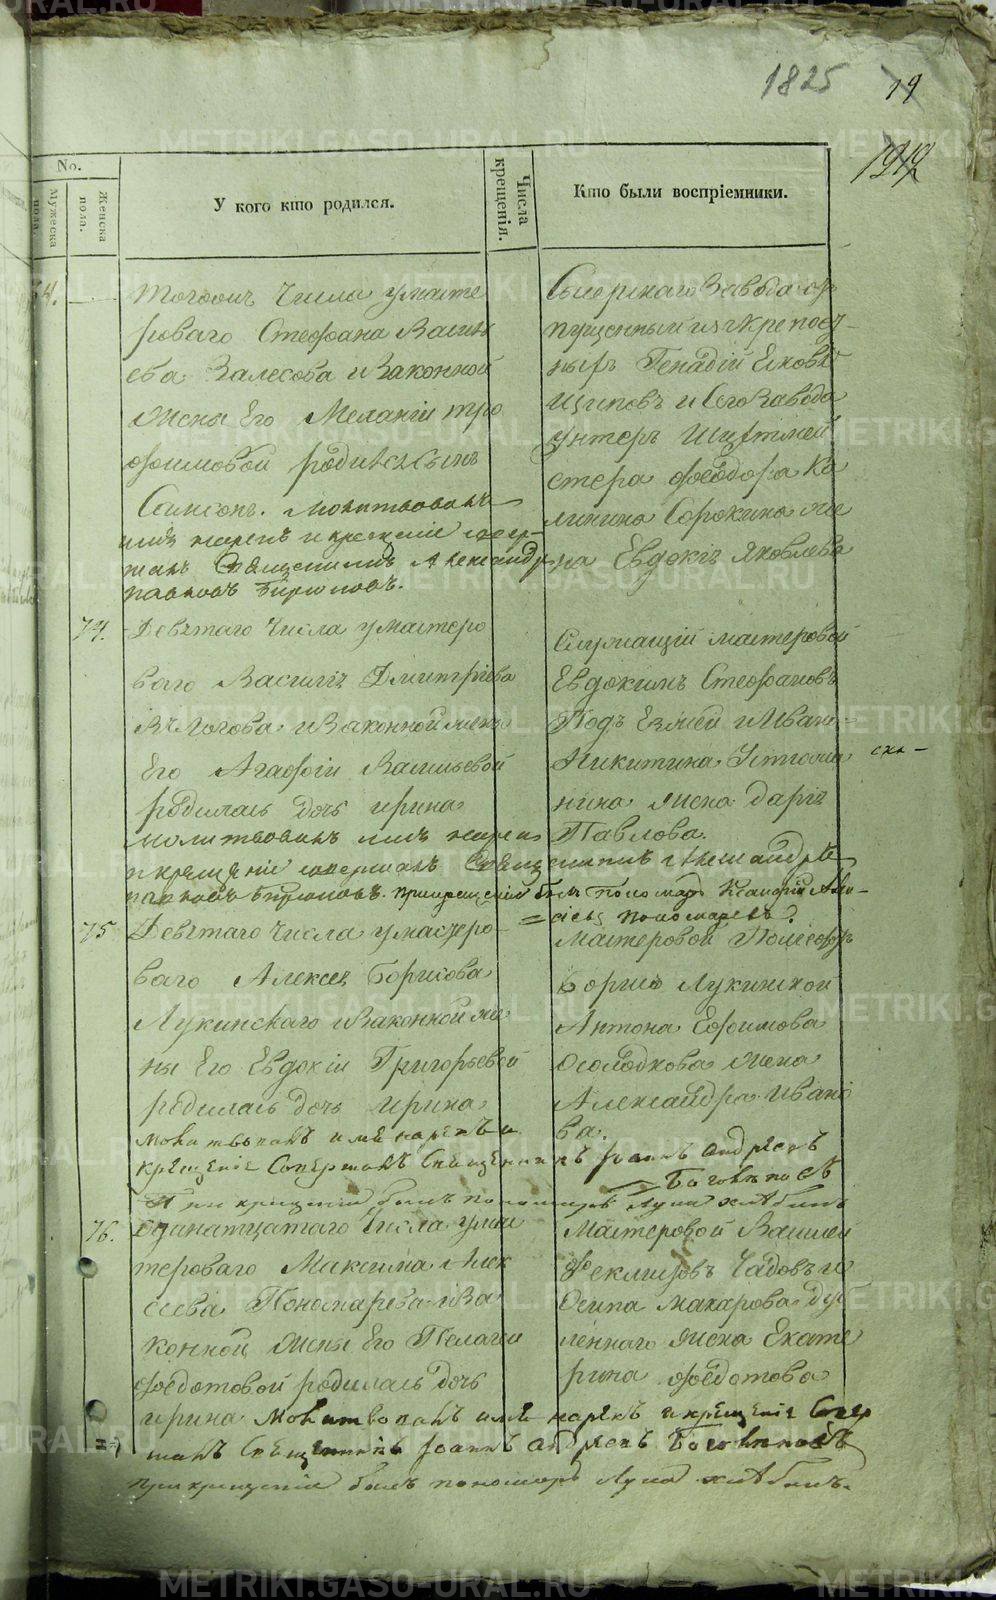 1825 19
1212
No.
Мужеска пола.
Женска пола.
У кого кто родился.
Числа крещенія.
Кто были воспріемники.
54.
Тогожъ Числа умасте
роваго Стефана Василь
ева Валесова изаконной
жены Его Меланіи тро
фимовой родилсясынъ
Самсонъ. молитвовалъ
имя нарекъ икрещеніе совер-
шалъ Священникъ Александръ
павловъ Бирюковъ.
Сысерскаго Завода от
пущенный изъкрепост-
ныхъ Генадій Еков
Щиповъ иСего Завода
унтеръ Шихтмей
стера Феодора Ка
линина Сорокина же
на Евдокія Яковлева
74.
Девятаго Числа умастеро
ваго Василія Дмитріева
изаконной жены
Его Агафьи Васильевой
родилась дочь ирина
молитвовалъ имя нарекъ
икрещеніе совершалъ Священникъ Александръ
павловъ Бирюковъ. прикрещеніи былъ пономарь
пономаревъ.
Служащій мастеровой
Евдокимъ Стефановъ
Под Иван
Никитина Устюжа
нина жена дарья
Павлова.
75
Девятаго Числа умастеро
ваго Алексея Борисова
Лукинскаго изаконной же
ны Его Евдокіи Григорьевой
родилась дочь ирина
молитвовалъ имя нарекъ и
крещеніе Совершалъ Священникъ Іоаннъ андреевъ
Боголеповъ
При крещеніи былъ пономарь Лука хлебинъ
Мастеровой
Борисъ Лукинской
Антона Ефимова
Осолодкова жена
Александра Ивано
ва.
76.
Одинатцатаго Числа умас
тероваго Максима Алек
сеева Пономарева иза
конной жены Его Пелагеи
федотовой родилась дочь
ирина молитвовалъ имя нарекъ икрещеніе Совер
шалъ Священникъ Іоаннъ андреевъ Боголеповъ
При крещеніи былъ пономарь Лука хлебинъ.
Мастеровой Василей
Феклистовъ Чадовъ и
Осипа макарова
жена Екате
рина федотова
METRIKI.GASO-URAL.RU